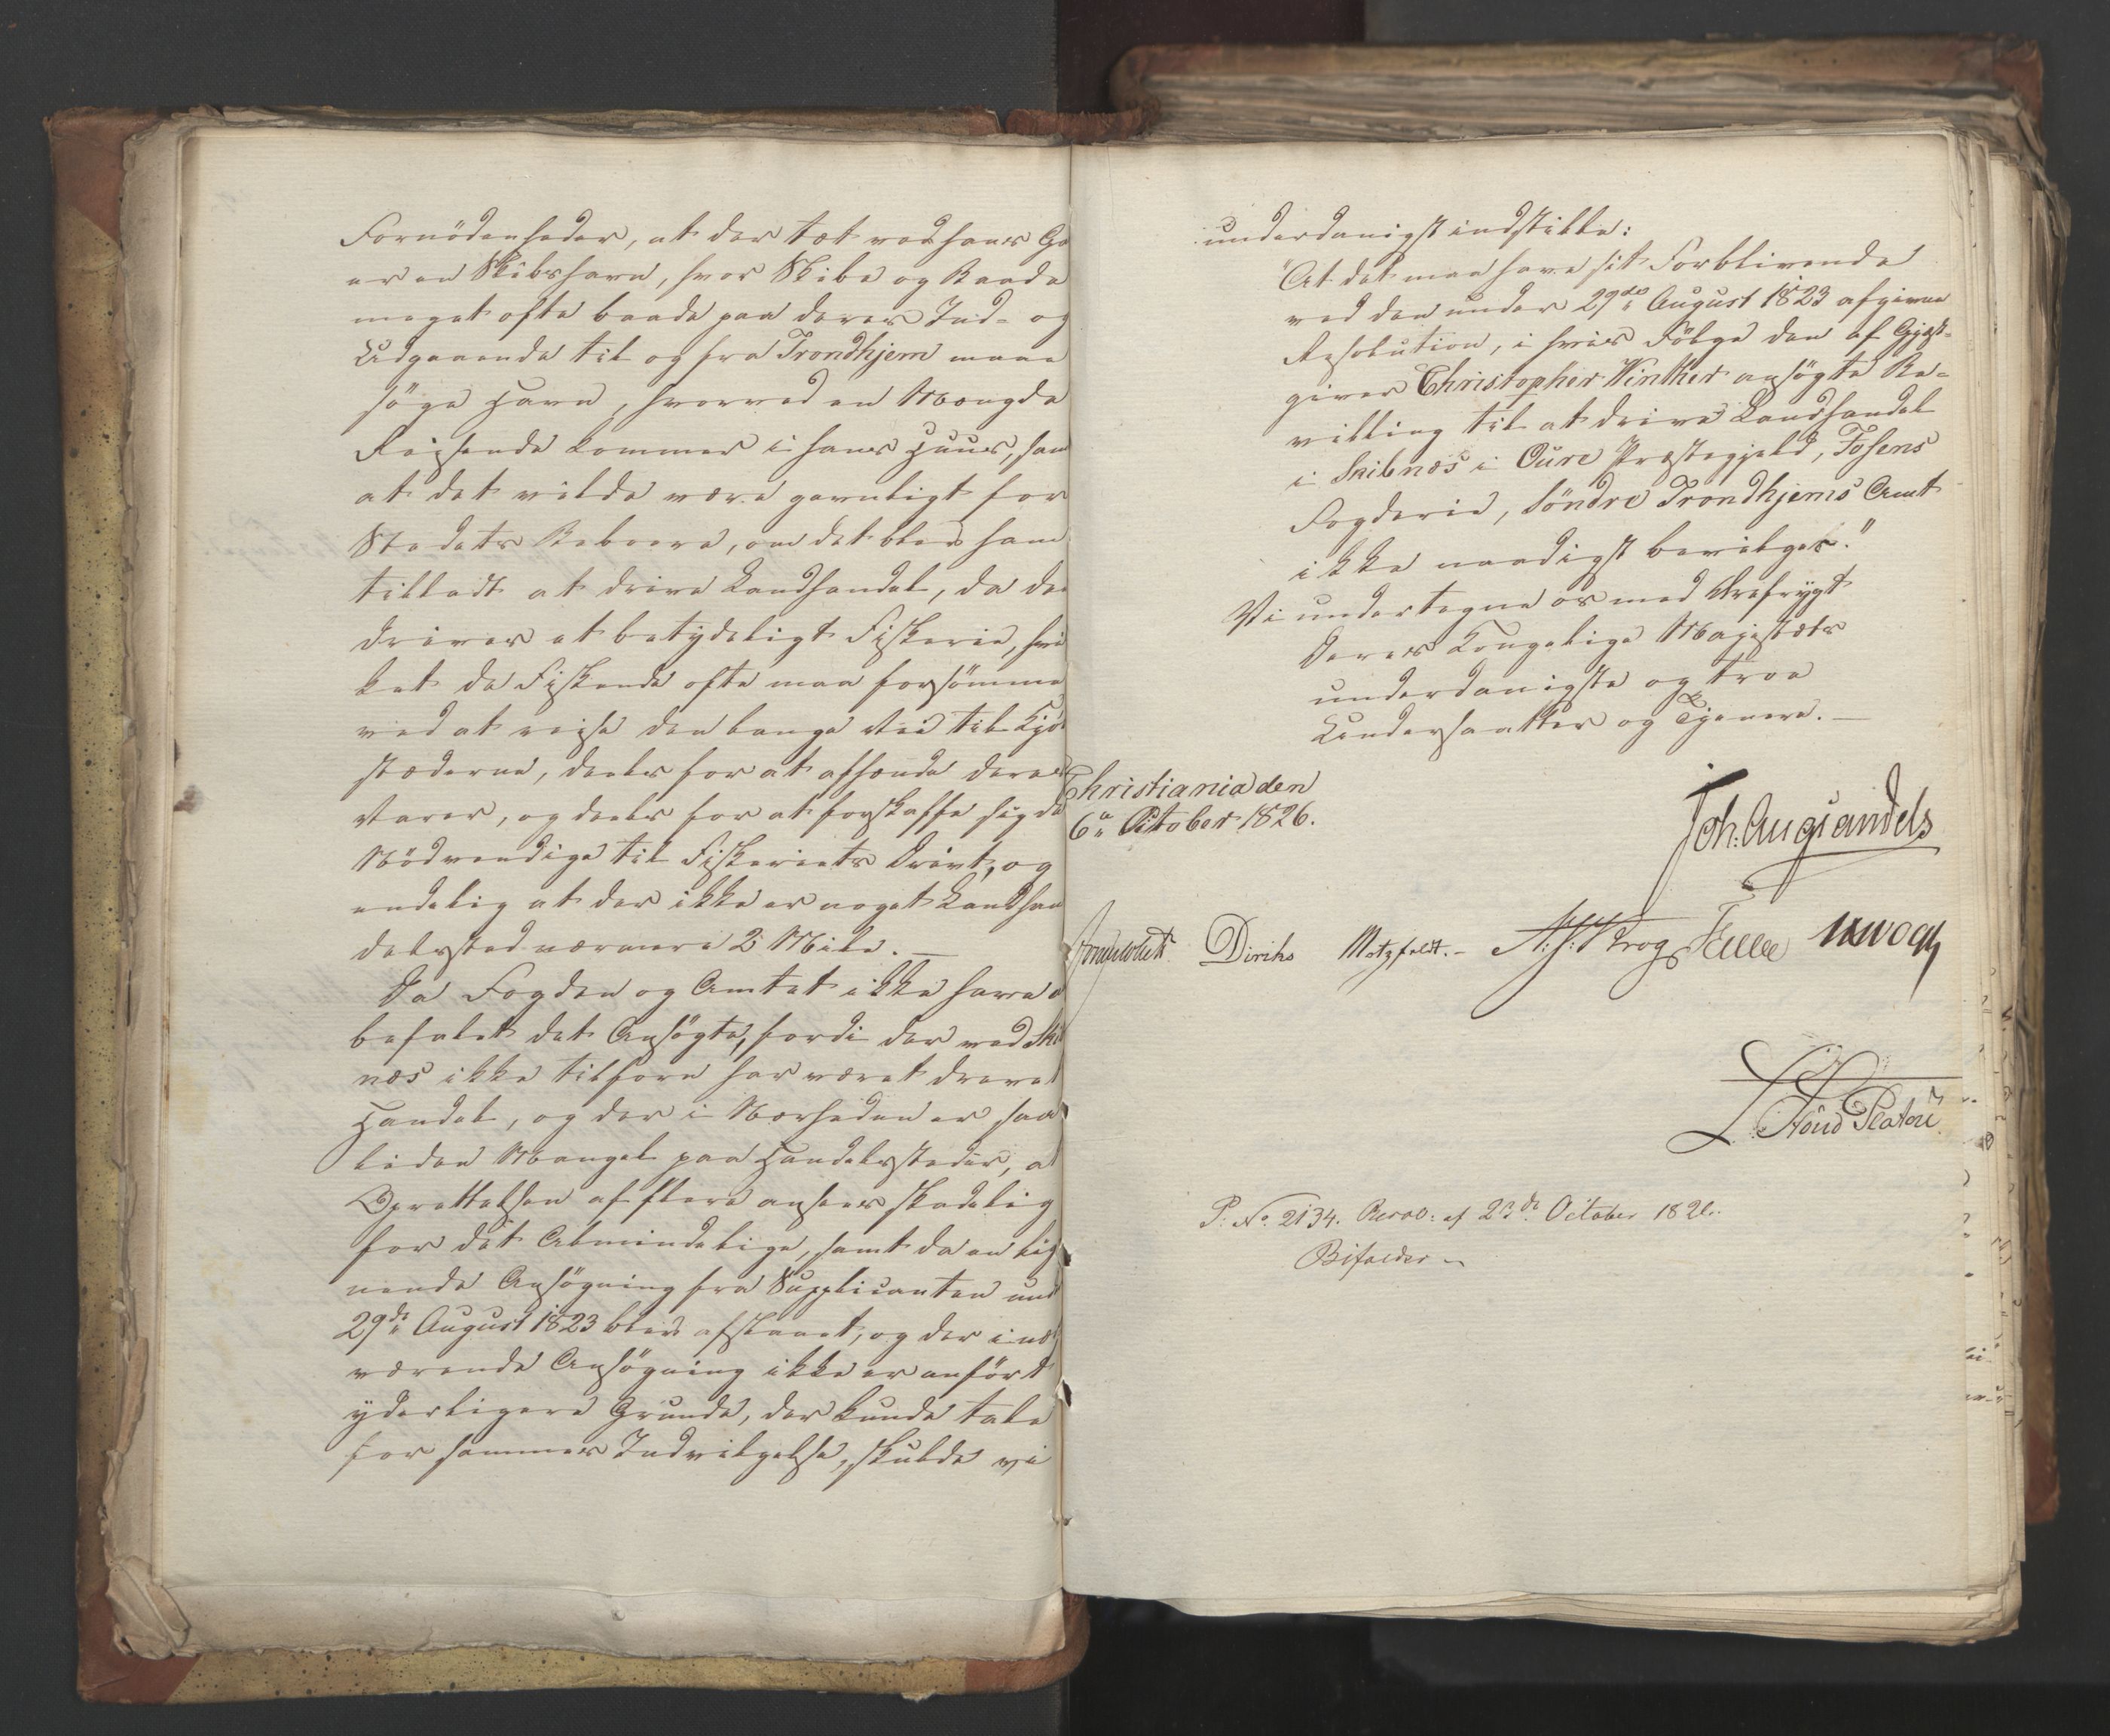 Fornödenheder, at der tæt ved hans Ga
er en Skibshavn, hvor Skibe og Baade
meget ofte baade paa deres Ind- og
Udgaaende til og fra Trondhjem maae
söge Havn, hvorved en Mængde
Reisende kommer i hans Huus, sam
at det vilde være gavnligt for
Stedets Beboere, om det blev ham
tilladt at drive Landhandel, da der
drives et betydeligt Fiskerie, hvil
ket de Fiskende ofte maa forsömme
ved at reise den lange Vei til Kjöb
stæderne, deels for at afsende deres
Varer, og deels for at forskaffe sig de
Nödvendige til Fiskeriets Drivt, og
endelig at der ikke er noget Landhan
delssted nærmere 2 Mile. —
Da Fogden og Amtet ikke have a
befalet det Ansögte, fordi der ved Skib
næs ikke tilforn har været drevet
Handel, og der i Nærheden er saa
liden Mangel paa Handelssteder, at
Oprettelsen af flere ansees skadelig
for det Almindelige, samt da en lig
nende Ansögning fra Supplicanten und
29de August 1823 blev afslaaet, og der i nær
værende Ansögning ikke er anfört
yderligere Grunde, der kunde tale
for sammes Indvilgelse, skulde vi
underdanigst indstille:
"At det maa have sit Forblivende
ved den under 29de August 1823 afgivne
Resolution, i hvis Fölge den af Gjæst-
giver Christopher Winther ansögte Be-
villing til at drive Landhandel
i Skibnæs i Oure Præstegjeld, Fosens
Fogderie, Söndre Trondhjems Amt
ikke naadigst bevilges."
Vi undertegne os med Ærefrygt
Deres Kongelige Majestæts
underdanigste og troe
Undersaatter og Tjenere. —
Christiania den
6te October 1826.
Joh. Aug. Sandels
Sommerhielm Diriks Motzfeldt. - A. S. Krog Falbe
L. Stoud Platou
P: No. 2134. Resol: af 23de October 1826.
Bifalder